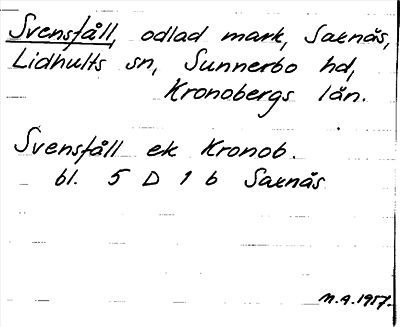 Svensfåll, odlad mark, Saxnäs,
Lidhults sn, Sunnerbo hd,
Kronobergs län.
Svensfåll ek Kronob.
bl. 5 D 1 b Saxnäs
M.A. 1957.